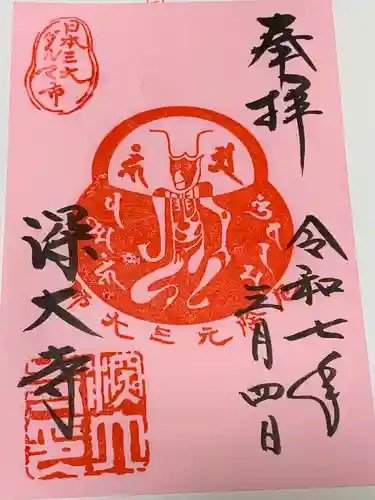 奉拝
令和七年
三月四日
日本三大
だるま市
元三大
深大寺